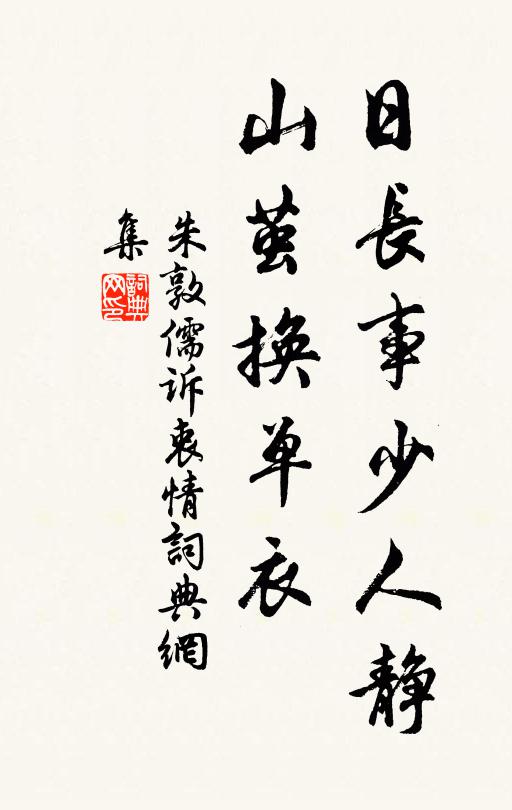 日長事少人静
山茧換单衣
朱敦儒訴衷情詞典網
集
詞典
网印